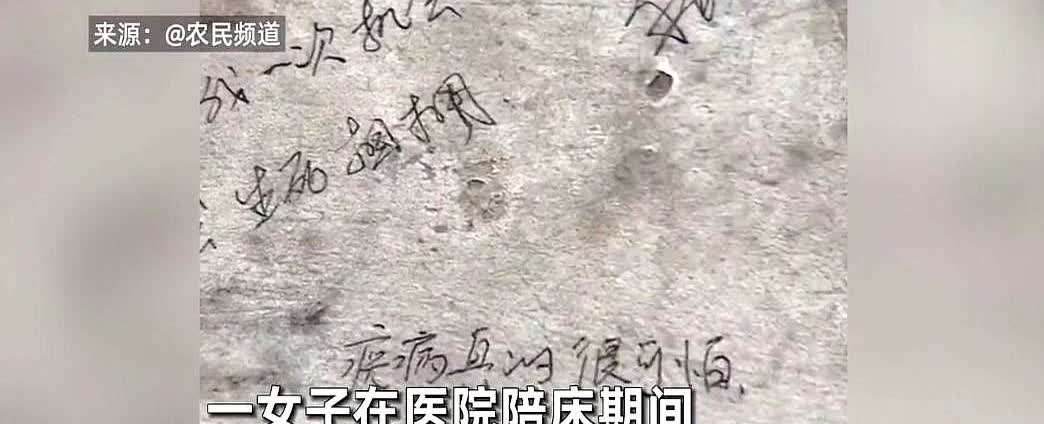 来源：@农民频道
我一次机会
生死相拥
疾病真的很可怕.
一女子在医院陪床期间